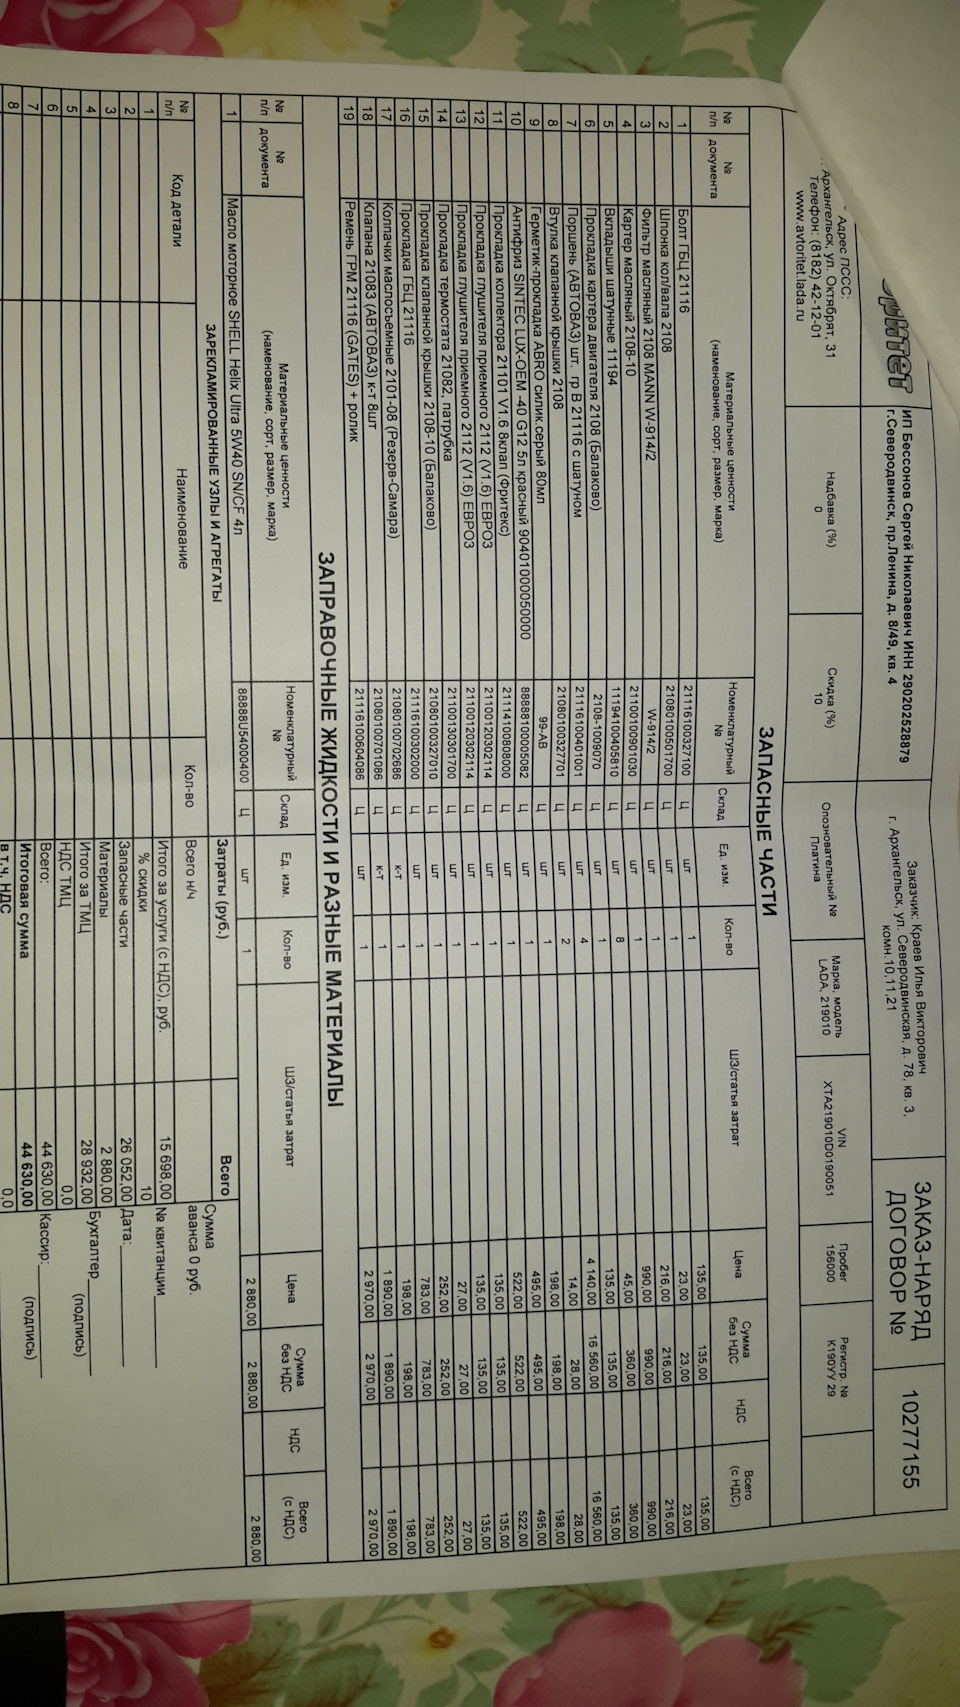 Адрес ПССС:
Архангельск, ул. Октябрят, 31
Телефон: (8182) 42-12-01
www.avtoritet.lada.ru
ритет
ИП Бессонов Сергей Николаевич ИНН 290202528879
г.Северодвинск, пр.Ленина, д. 8/49, кв. 4
Заказчик: Краев Илья Викторович
г. Архангельск, ул. Северодвинская, д. 78, кв. 3,
комн.10,11,21
ЗАКАЗ-НАРЯД
ДОГОВОР №
10277155
Надбавка (%)
0
Скидка (%)
10
Опозновательный №
Платина
Марка, модель
LADA, 219010
VIN
XTA219010D0190051
Пробег
156000
Регистр. №
К190УУ 29
ЗАПАСНЫЕ ЧАСТИ
№ п/п № документа Материальные ценности (наименование, сорт, размер, марка) Номенклатурный № Склад Ед. изм. Кол-во ШЗ/статья затрат Цена Сумма без НДС НДС Всего (с НДС)
1 Болт ГБЦ 21116 21116100327100 Ц шт 1 135,00 135,00 135,00
2 Шпонка кол/вала 2108 21080100501700 Ц шт 1 23,00 23,00 23,00
3 Фильтр масляный 2108 MANN W-914/2 W-914/2 Ц шт 1 216,00 216,00 216,00
4 Картер масляный 2108-10 21100100901030 Ц шт 1 990,00 990,00 990,00
5 Вкладыши шатунные 11194 11194100405810 Ц шт 8 45,00 360,00 360,00
6 Прокладка картера двигателя 2108 (Балаково) 2108-1009070 Ц шт 1 135,00 135,00 135,00
7 Поршень (АВТОВАЗ) шт. гр В 21116 с шатуном 21116100401001 Ц шт 4 4 140,00 16 560,00 16 560,00
8 Втулка клапанной крышки 2108 21080100327701 Ц шт 2 14,00 28,00 28,00
9 Герметик-прокладка ABRO силик.серый 80мл 99-AB Ц шт 1 198,00 198,00 198,00
10 Антифриз SINTEC LUX-OEM -40 G12 5л красный 90401000050000 88888100005082 Ц шт 1 495,00 495,00 495,00
11 Прокладка коллектора 21101 V1.6 8клап (Фритекс) 21114100808000 Ц шт 1 522,00 522,00 522,00
12 Прокладка глушителя приемного 2112 (V1.6) ЕВРО3 21100120302114 Ц шт 1 135,00 135,00 135,00
13 Прокладка глушителя приемного 2112 (V1.6) ЕВРО3 21100120302114 Ц шт 1 135,00 135,00 135,00
14 Прокладка термостата 21082, патрубка 21100130301700 Ц шт 1 27,00 27,00 27,00
15 Прокладка клапанной крышки 2108-10 (Балаково) 21080100327010 Ц шт 1 252,00 252,00 252,00
16 Прокладка ГБЦ 21116 21116100302000 Ц шт 1 783,00 783,00 783,00
17 Колпачки маслосъемные 2101-08 (Резерв-Самара) 21080100702686 Ц к-т 1 198,00 198,00 198,00
18 Клапана 21083 (АВТОВАЗ) к-т 8шт 21080100701086 Ц к-т 1 1 890,00 1 890,00 1 890,00
19 Ремень ГРМ 21116 (GATES) + ролик 21116100604086 Ц шт 1 2 970,00 2 970,00 2 970,00
ЗАПРАВОЧНЫЕ ЖИДКОСТИ И РАЗНЫЕ МАТЕРИАЛЫ
№ п/п № документа Материальные ценности (наименование, сорт, размер, марка) Номенклатурный № Склад Ед. изм. Кол-во ШЗ/статья затрат Цена Сумма без НДС НДС Всего (с НДС)
1 Масло моторное SHELL Helix Ultra 5W40 SN/CF 4л 88888U54000400 Ц шт 1 2 880,00 2 880,00 2 880,00
ЗАРЕКЛАМИРОВАННЫЕ УЗЛЫ И АГРЕГАТЫ
№ п/п Код детали Наименование Кол-во
1
2
3
4
5
6
7
8
Затраты (руб.) Всего
Всего н/ч
Итого за услуги (с НДС), руб. 15 698,00
% скидки 10
Запасные части 26 052,00
Материалы 2 880,00
Итого за ТМЦ 28 932,00
НДС ТМЦ 0,0
Всего: 44 630,00
Итоговая сумма 44 630,00
в т.ч. НДС 0,0
Сумма
аванса 0 руб.
№ квитанции
Дата:
Бухгалтер
(подпись)
Кассир:
(подпись)